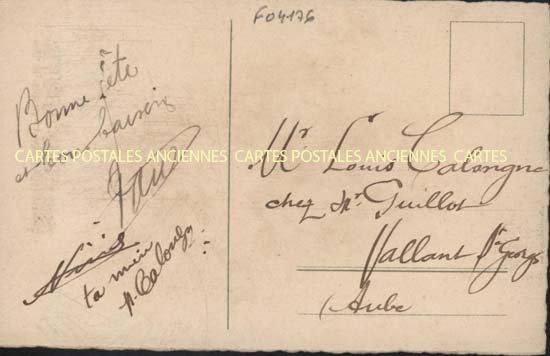 F04176
Bonne fête
et bons baisers
ta
CARTES POSTALES ANCIENNES CARTES POSTALES ANCIENNES CARTES
Mr Louis Calongne
chez Mr. Guillot
Vallant St Georges
Aube